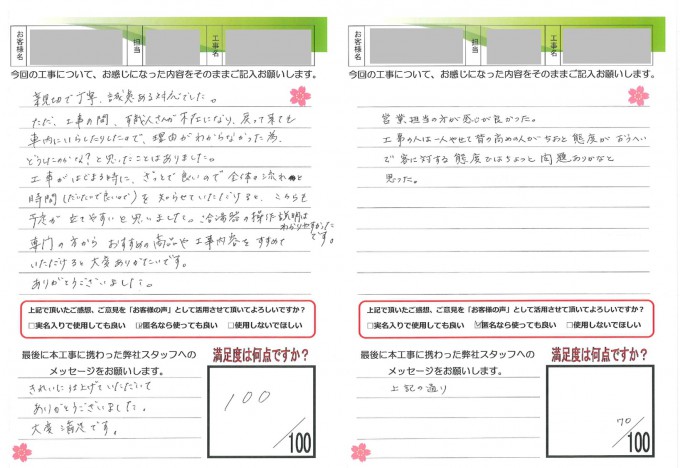 お客様名
担当
工事名
今回の工事について、お感じになった内容をそのままご記入お願いします。
親切で丁寧、誠意ある対応でした。
ただ、工事の間、職人さんが不在になり、戻って来ても
車内にいらしたりしたので、理由がわからなかった為、
どうしたのかな？と思ったことはありました。
工事がはじまる時に、ざっとで良いので全体の流れと
時間(だいたいで良いので)を知らせていただけると、こちらも
予定が立てやすいと思いました。冷湯器の操作説明は
わかりやすかったです。
専門の方からおすすめの商品や工事内容をすすめて
いただけると大変ありがたいです。
ありがとうございました。
上記で頂いたご感想、ご意見を「お客様の声」として活用させて頂いてよろしいですか？
□実名入りで使用しても良い ☑匿名なら使っても良い □使用しないでほしい
最後に本工事に携わった弊社スタッフへの
メッセージをお願いします。
きれいに仕上げていただいて
ありがとうございました。
大変満足です。
満足度は何点ですか？
100
/100
お客様名
担当
工事名
今回の工事について、お感じになった内容をそのままご記入お願いします。
営業担当の方が感じが良かった。
工事の人は一人やせて背の高めの人がちょっと態度がおうへい
でお客に対する態度ではちょっと問題ありかなと
思った。
上記で頂いたご感想、ご意見を「お客様の声」として活用させて頂いてよろしいですか？
□実名入りで使用しても良い ☑匿名なら使っても良い □使用しないでほしい
最後に本工事に携わった弊社スタッフへの
メッセージをお願いします。
上記の通り
満足度は何点ですか？
70
/100